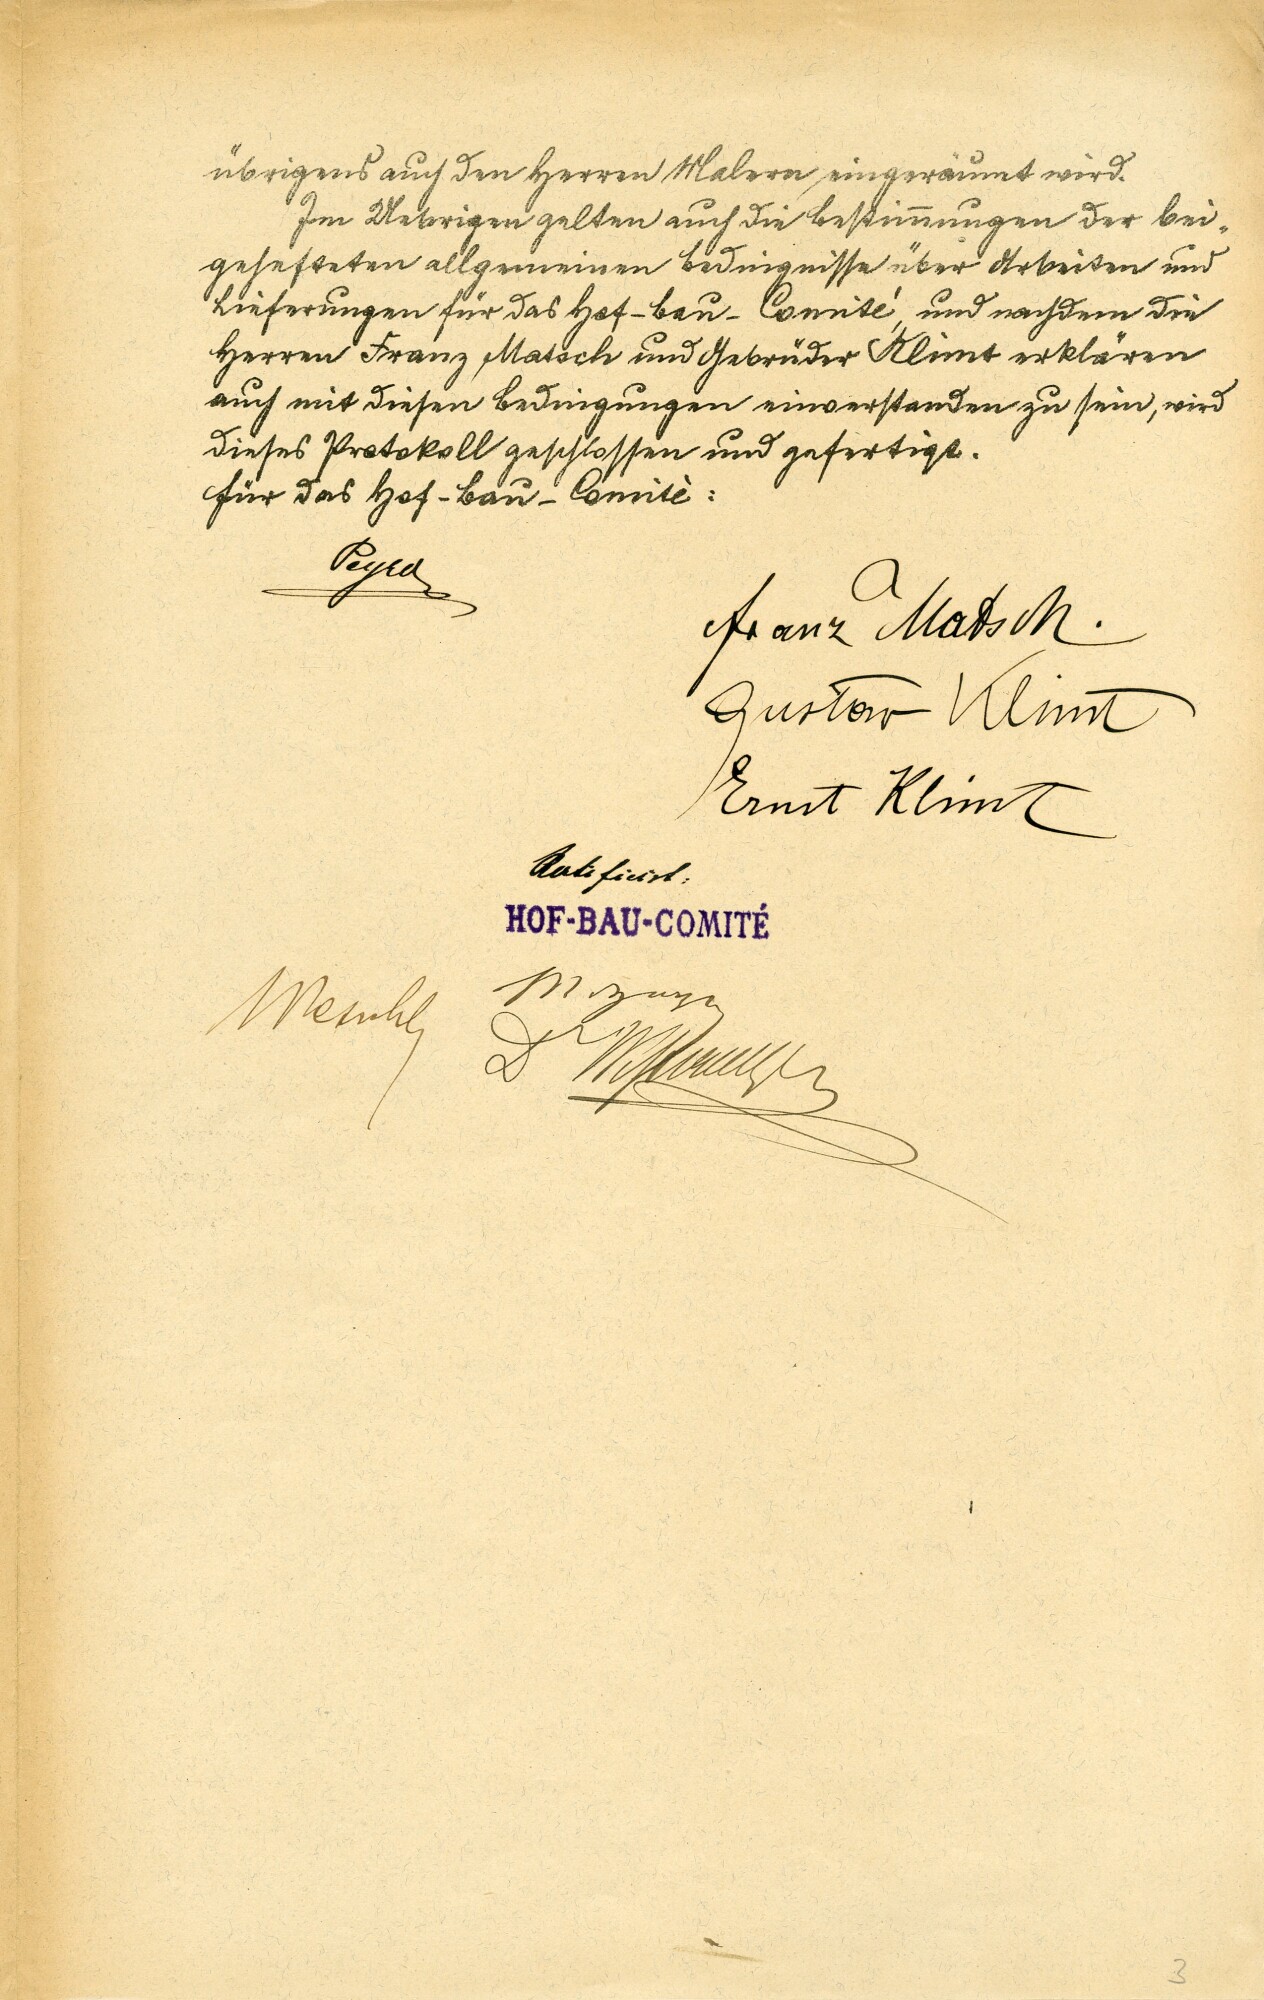 übrigens auch den Herren Malern eingeräumt wird.
Im Uebrigen gelten auch die Bestimmungen der bei-
gehefteten allgemeinen Bedingnisse über Arbeiten und
Lieferungen für das Hof-Bau-Comité, und nachdem die
Herren Franz Matsch und Gebrüder Klimt erklären
auch mit diesen Bedingungen einverstanden zu sein, wird
dieses Protokoll geschlossen und gefertigt.
Für das Hof-Bau-Comitè:
Franz Matsch.
Gustav Klimt
Ernst Klimt
Ratificirt:
HOF-BAU-COMITÉ
Dr
3